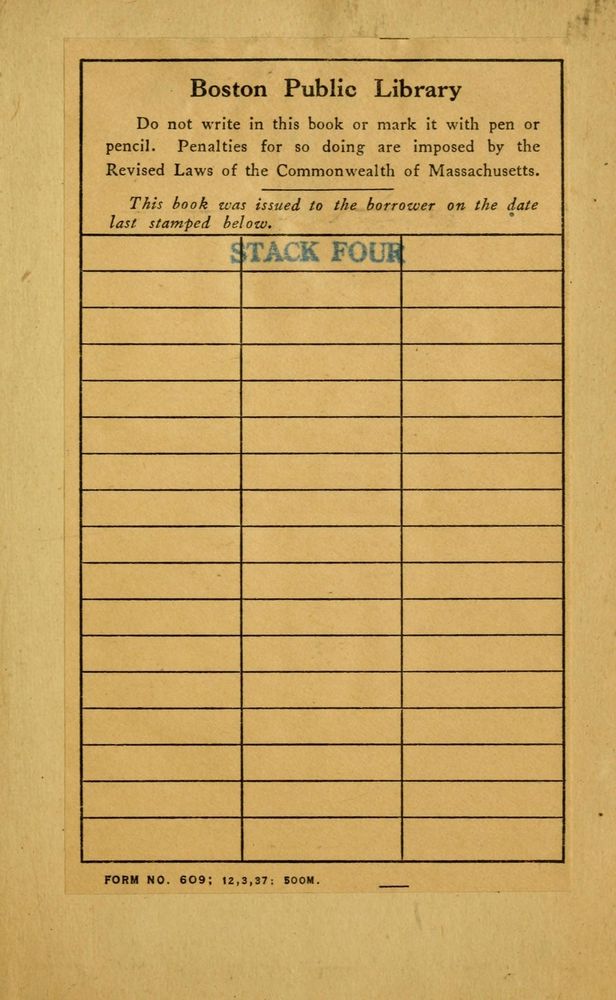 Boston Public Library
Do not write in this book or mark it with pen or
pencil. Penalties for so doing are imposed by the
Revised Laws of the Commonwealth of Massachusetts.
This book was issued to the borrower on the date
last stamped below.
STACK FOUR
FORM NO. 609; 12,3,37: 500M.